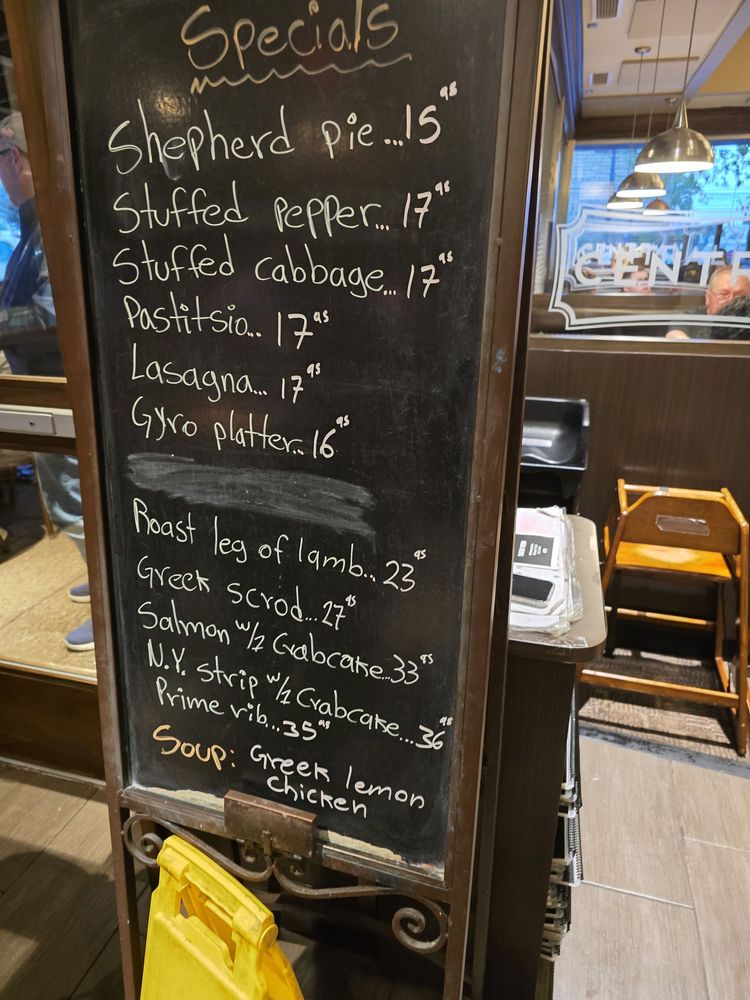 Specials
Shepherd pie...15 95
Stuffed pepper...17 95
Stuffed cabbage...17 95
Pastitsio...17 95
Lasagna...17 95
Gyro platter..16 95
Roast leg of lamb...23 95
Greek scrod...27 95
Salmon w/1 Crabcake...33 95
N.Y. strip w/1 Crabcake...36 95
Prime rib...35 95
Soup: Greek lemon
chicken